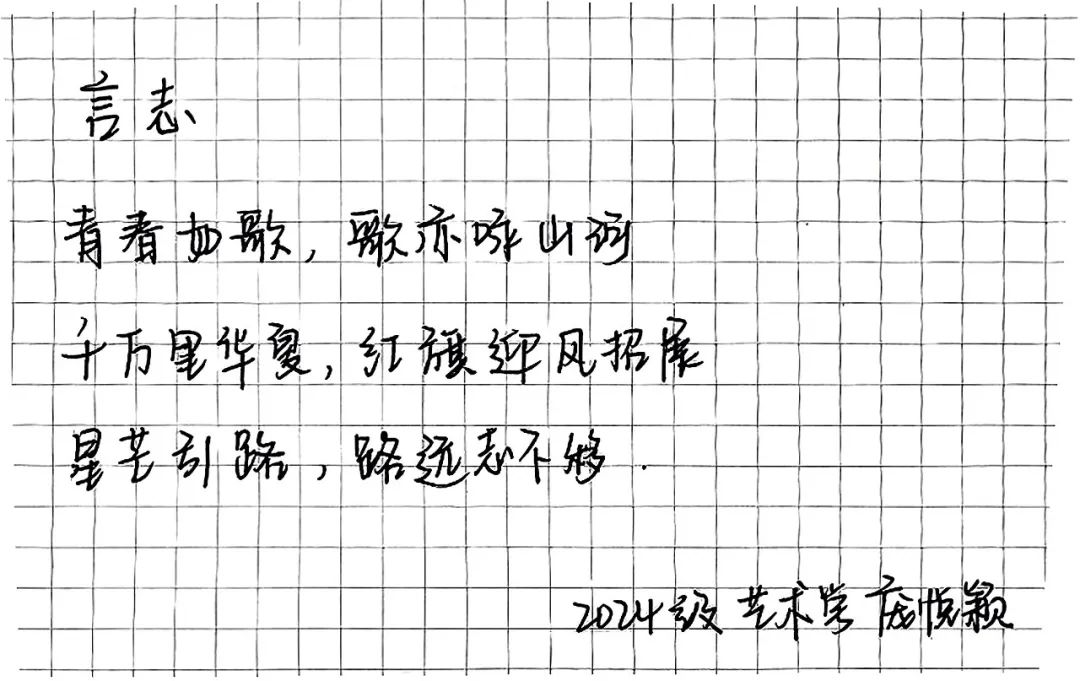 言志
青春如歌，歌亦咏山河
千万里华夏，红旗迎风招展
星芒引路，路远志不移.
2024级 艺术学 庞悦颖